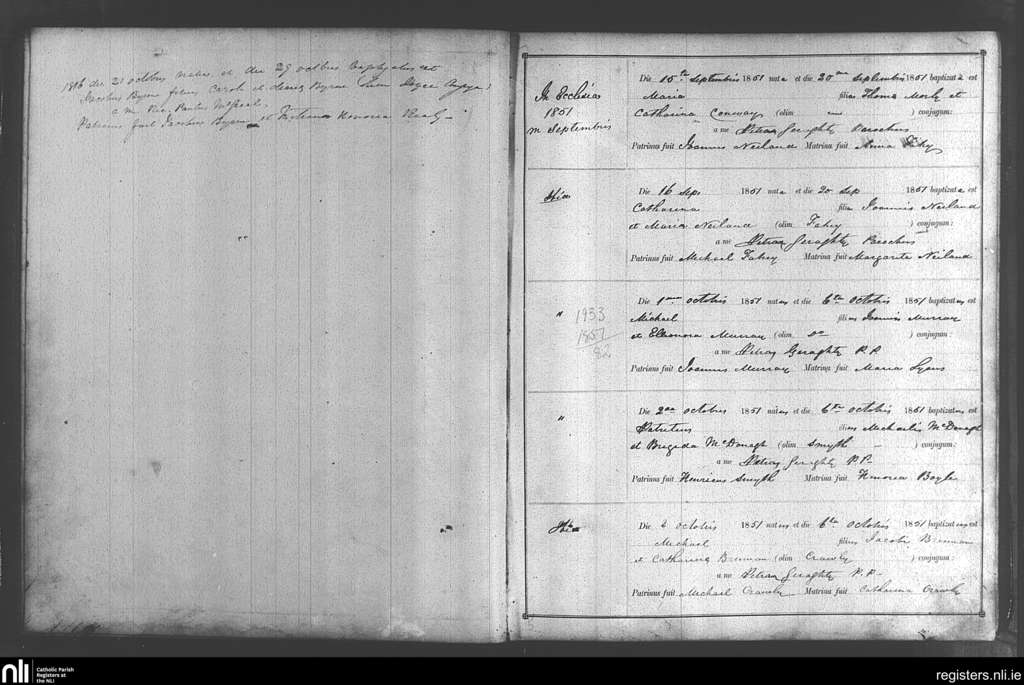 1816 die 21 octobris natus et die 29 octobris baptizatus est
Jacobus Byrne filius
a me Rev. Paulus
Patrinus fuit Jacobus Byrne et Honoria Healy
In Ecclesia
1851
m Septembris
Die 15 Septembris 1851 nata et die 20 Septembris 1851 baptizata est
Maria filia Thoma et
Catharina Conway (olim — ) conjugum:
a me Petrus Geraghty Parochus
Patrinus fuit Joannis Neiland Matrina fuit Anna Fahy
Die 16 Sep 1851 nata et die 20 Sep 1851 baptizata est
Catharina filia Joannis Neiland
et Maria Neiland (olim Fahy ) conjugum:
a me Petrus Geraghty Parochus
Patrinus fuit Michael Fahey Matrina fuit Margarita Neiland
"
1953
1851
82
Die 1 octobris 1851 natus et die 6 octobris 1851 baptizatus est
Michael filius Joannis Murray
et Eleanora Murray (olim do ) conjugum:
a me Petrus Geraghty P.P.
Patrinus fuit Joannis Murray Matrina fuit Maria Lyons
"
Die 2 octobris 1851 natus et die 6 octobris 1851 baptizatus est
Patritius filius Michaelis McDonagh
et Brigida McDonagh (olim Smyth — ) conjugum:
a me Petrus Geraghty P.P.
Patrinus fuit Henricus Smyth Matrina fuit Honoria Boyle
Die octobris 1851 natus et die 6 octobris 1851 baptizatus est
Michael filius Jacobi Brennan
et Catharina Brennan (olim Crawly ) conjugum:
a me Petrus Geraghty P.P.
Patrinus fuit Michael Crawly Matrina fuit Catharina Crawly
nli
Catholic Parish
Registers at
the NLI
registers.nli.ie